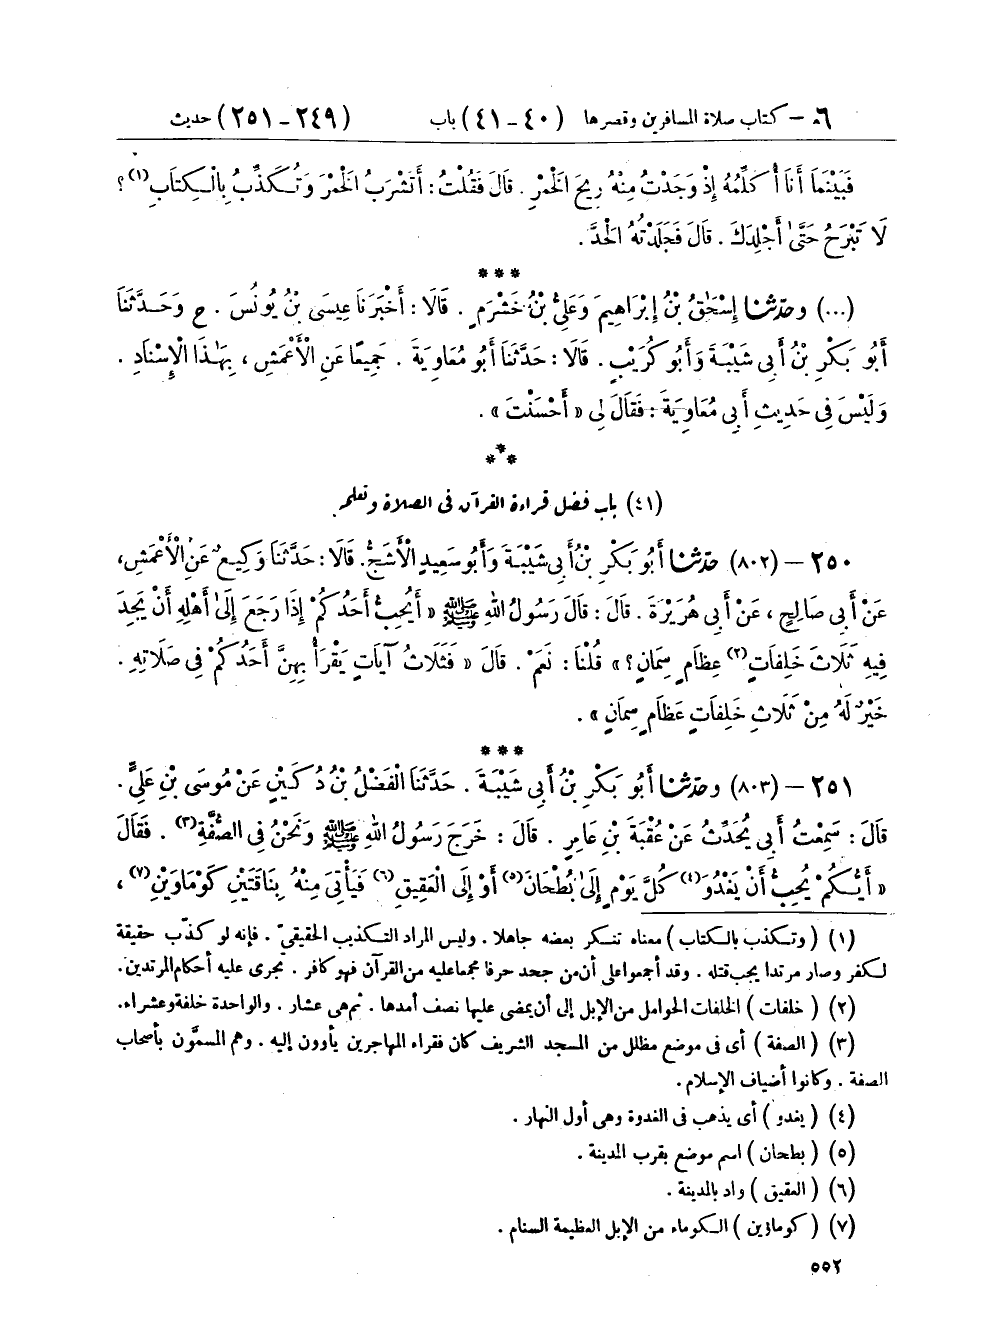 ٦ – كتاب صلاة المسافرين وقصرها (٤٠ – ٤١) باب (٢٤٩ – ٢٥١) حديث
فَبَيْنَمَا أَنَا أُكَلِّمُهُ إِذْ وَجَدْتُ مِنْهُ رِيحَ الْخَمْرِ . قَالَ فَقُلْتُ : أَتَشْرَبُ الْخَمْرَ وَتُكَذِّبُ بِالْكِتَابِ(١) ؟
لَا تَبْرَحُ حَتَّىٰ أَجْلِدَكَ . قَالَ فَجَلَدْتُهُ الْحَدَّ .
***
(...) وحدّثنا إِسْحَقُ بْنُ إِبْرَاهِيمَ وَعَلِيُّ بْنُ خَشْرَمٍ . قَالَا : أَخْبَرَنَا عِيسَى بْنُ يُونُسَ . ح وَحَدَّثَنَا
أَبُو بَكْرِ بْنُ أَبِي شَيْبَةَ وَأَبُو كُرَيْبٍ . قَالَا : حَدَّثَنَا أَبُو مُعَاوِيَةَ . جَمِيعًا عَنِ الْأَعْمَشِ ، بِهَٰذَا الْإِسْنَادِ .
وَلَيْسَ فِي حَدِيثِ أَبِي مُعَاوِيَةَ : فَقَالَ لِي « أَحْسَنْتَ » .
***
(٤١) باب فضل قراءة القرآن فى الصلاة وتعلمه
٢٥٠ – (٨٠٢) حدّثنا أَبُو بَكْرِ بْنُ أَبِي شَيْبَةَ وَأَبُو سَعِيدٍ الْأَشَجُّ. قَالَا : حَدَّثَنَا وَكِيعٌ عَنِ الْأَعْمَشِ،
عَنْ أَبِي صَالِحٍ ، عَنْ أَبِي هُرَيْرَةَ . قَالَ : قَالَ رَسُولُ اللهِ ﷺ « أَيُحِبُّ أَحَدُكُمْ إِذَا رَجَعَ إِلَىٰ أَهْلِهِ أَنْ يَجِدَ
فِيهِ ثَلَاثَ خَلِفَاتٍ(٢) عِظَامٍ سِمَانٍ ؟ » قُلْنَا : نَعَمْ . قَالَ « فَثَلَاثُ آيَاتٍ يَقْرَأُ بِهِنَّ أَحَدُكُمْ فِي صَلَاتِهِ .
خَيْرٌ لَهُ مِنْ ثَلَاثِ خَلِفَاتٍ عِظَامٍ سِمَانٍ » .
***
٢٥١ – (٨٠٣) وحدّثنا أَبُو بَكْرِ بْنُ أَبِي شَيْبَةَ . حَدَّثَنَا الْفَضْلُ بْنُ دُكَيْنٍ عَنْ مُوسَى بْنِ عَلِيٍّ .
قَالَ : سَمِعْتُ أَبِي يُحَدِّثُ عَنْ عُقْبَةَ بْنِ عَامِرٍ . قَالَ : خَرَجَ رَسُولُ اللهِ ﷺ وَنَحْنُ فِي الصُّفَّةِ(٣) . فَقَالَ
« أَيُّكُمْ يُحِبُّ أَنْ يَغْدُوَ(٤) كُلَّ يَوْمٍ إِلَىٰ بُطْحَانَ(٥) أَوْ إِلَى الْعَقِيقِ(٦) فَيَأْتِيَ مِنْهُ بِنَاقَتَيْنِ كَوْمَاوَيْنِ(٧) ،
(١) ( وتكذب بالكتاب ) معناه تنكر بعضه جاهلا . وليس المراد التكذيب الحقيقىّ . فإنه لو كذّب حقيقة
لكفر وصار مرتدا يجب قتله . وقد أجمعوا على أن من جحد حرفا مجمعا عليه من القرآن فهو كافر . تجرى عليه أحكام المرتدين.
(٢) ( خلفات ) الخلفات الحوامل من الإبل إلى أن يمضى عليها نصف أمدها . ثم هى عشار . والواحدة خلفة وعشراء.
(٣) ( الصفة ) أى فى موضع مظلل من المسجد الشريف كان فقراء المهاجرين يأوون إليه . وهم المسمَّون بأصحاب
الصفة . وكانوا أضياف الإسلام .
(٤) ( يغدو ) أى يذهب فى الغدوة وهى أول النهار .
(٥) ( بطحان ) اسم موضع بقرب المدينة .
(٦) ( العقيق ) واد بالمدينة .
(٧) ( كوماوين ) الكوماء من الإبل العظيمة السنام .
٥٥٢